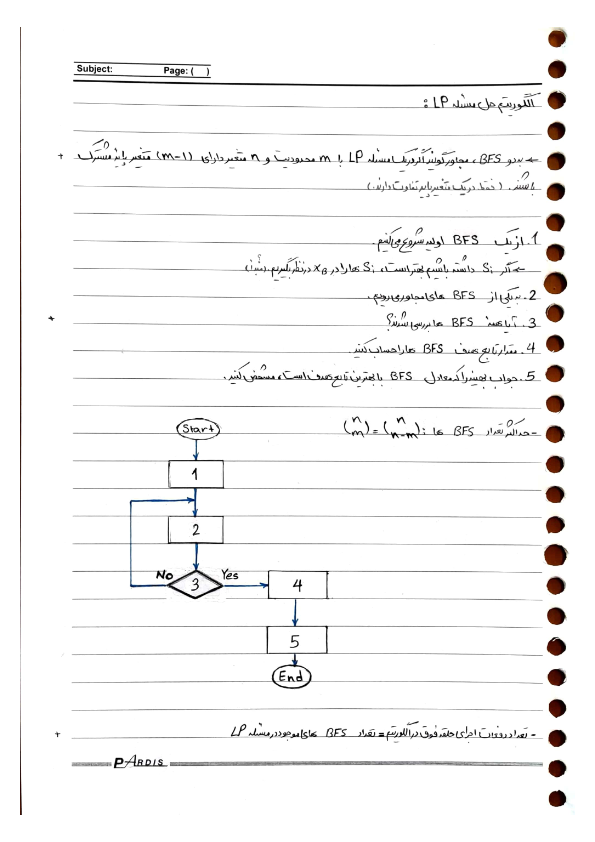 Subject:
Page: ( )
الگوریتم حل مسئله LP :
← به دو BFS ، مجاور گویند اگر در یک مسئله LP با m محدودیت و n متغیر دارای (m-1) متغیر پایه مشترک
باشند. (فقط در یک متغیر پایه تفاوت دارند.)
1. از یک BFS اولیه شروع می‌کنیم.
← اگر Si داشته باشیم بهتر است، Si ها را در XB در نظر بگیریم.
2. به یکی از BFS های مجاور می‌رویم.
3. آیا همهٔ BFS ها بررسی شدند؟
4. مقدار تابع هدف BFS ها را حساب کنید.
5. جواب بهینه را که معادل BFS با بهترین تابع هدف است، مشخص کنید.
- حداکثر تعداد BFS ها : (n m) = (n n-m)
Start
1
2
No
3
Yes
4
5
End
- تعداد دفعات اجرای حلقه فوق در الگوریتم = تعداد BFS های موجود در مسئله LP
PARDIS